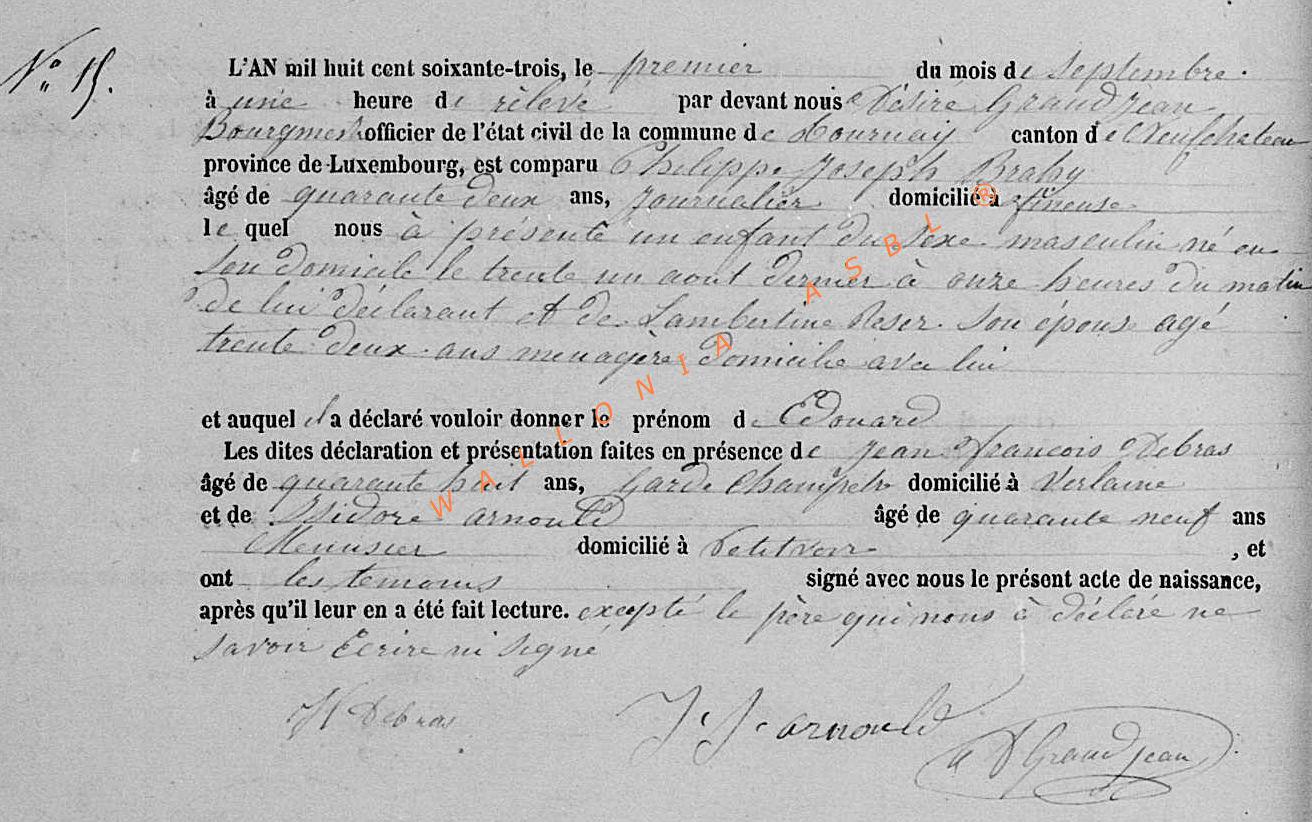 N° 15.
L'AN mil huit cent soixante-trois, le premier du mois de Septembre.
à une heure de rélevé par devant nous Désiré Grandjean
Bourgmest officier de l'état civil de la commune de Tournay canton de Neufchateau
province de Luxembourg, est comparu Philippe Joseph Brahy
âgé de quarante deux ans, Journalier domicilié à fineuse.
le quel nous à présenté un enfant du sexe masculin né en
son domicile le trente un aout dernier à onze heures du matin
de lui déclarant et de Lambertine Reser. son épouse agé
trente deux ans menagère domicilie avec lui
et auquel il a déclaré vouloir donner le prénom de Edouard
Les dites déclaration et présentation faites en présence de Jean francois Debras
âgé de quarante huit ans, Garde Champetre domicilié à Verlaine
et de Isidore arnould âgé de quarante neuf ans
Menusier domicilié à Petitvoir , et
ont les temoins signé avec nous le présent acte de naissance,
après qu'il leur en a été fait lecture. excepté le père qui nous à déclaré ne
savoir Ecrire ni signé
Jf Debras J. J. arnould D Grandjean
WALLONIA ASBL ®